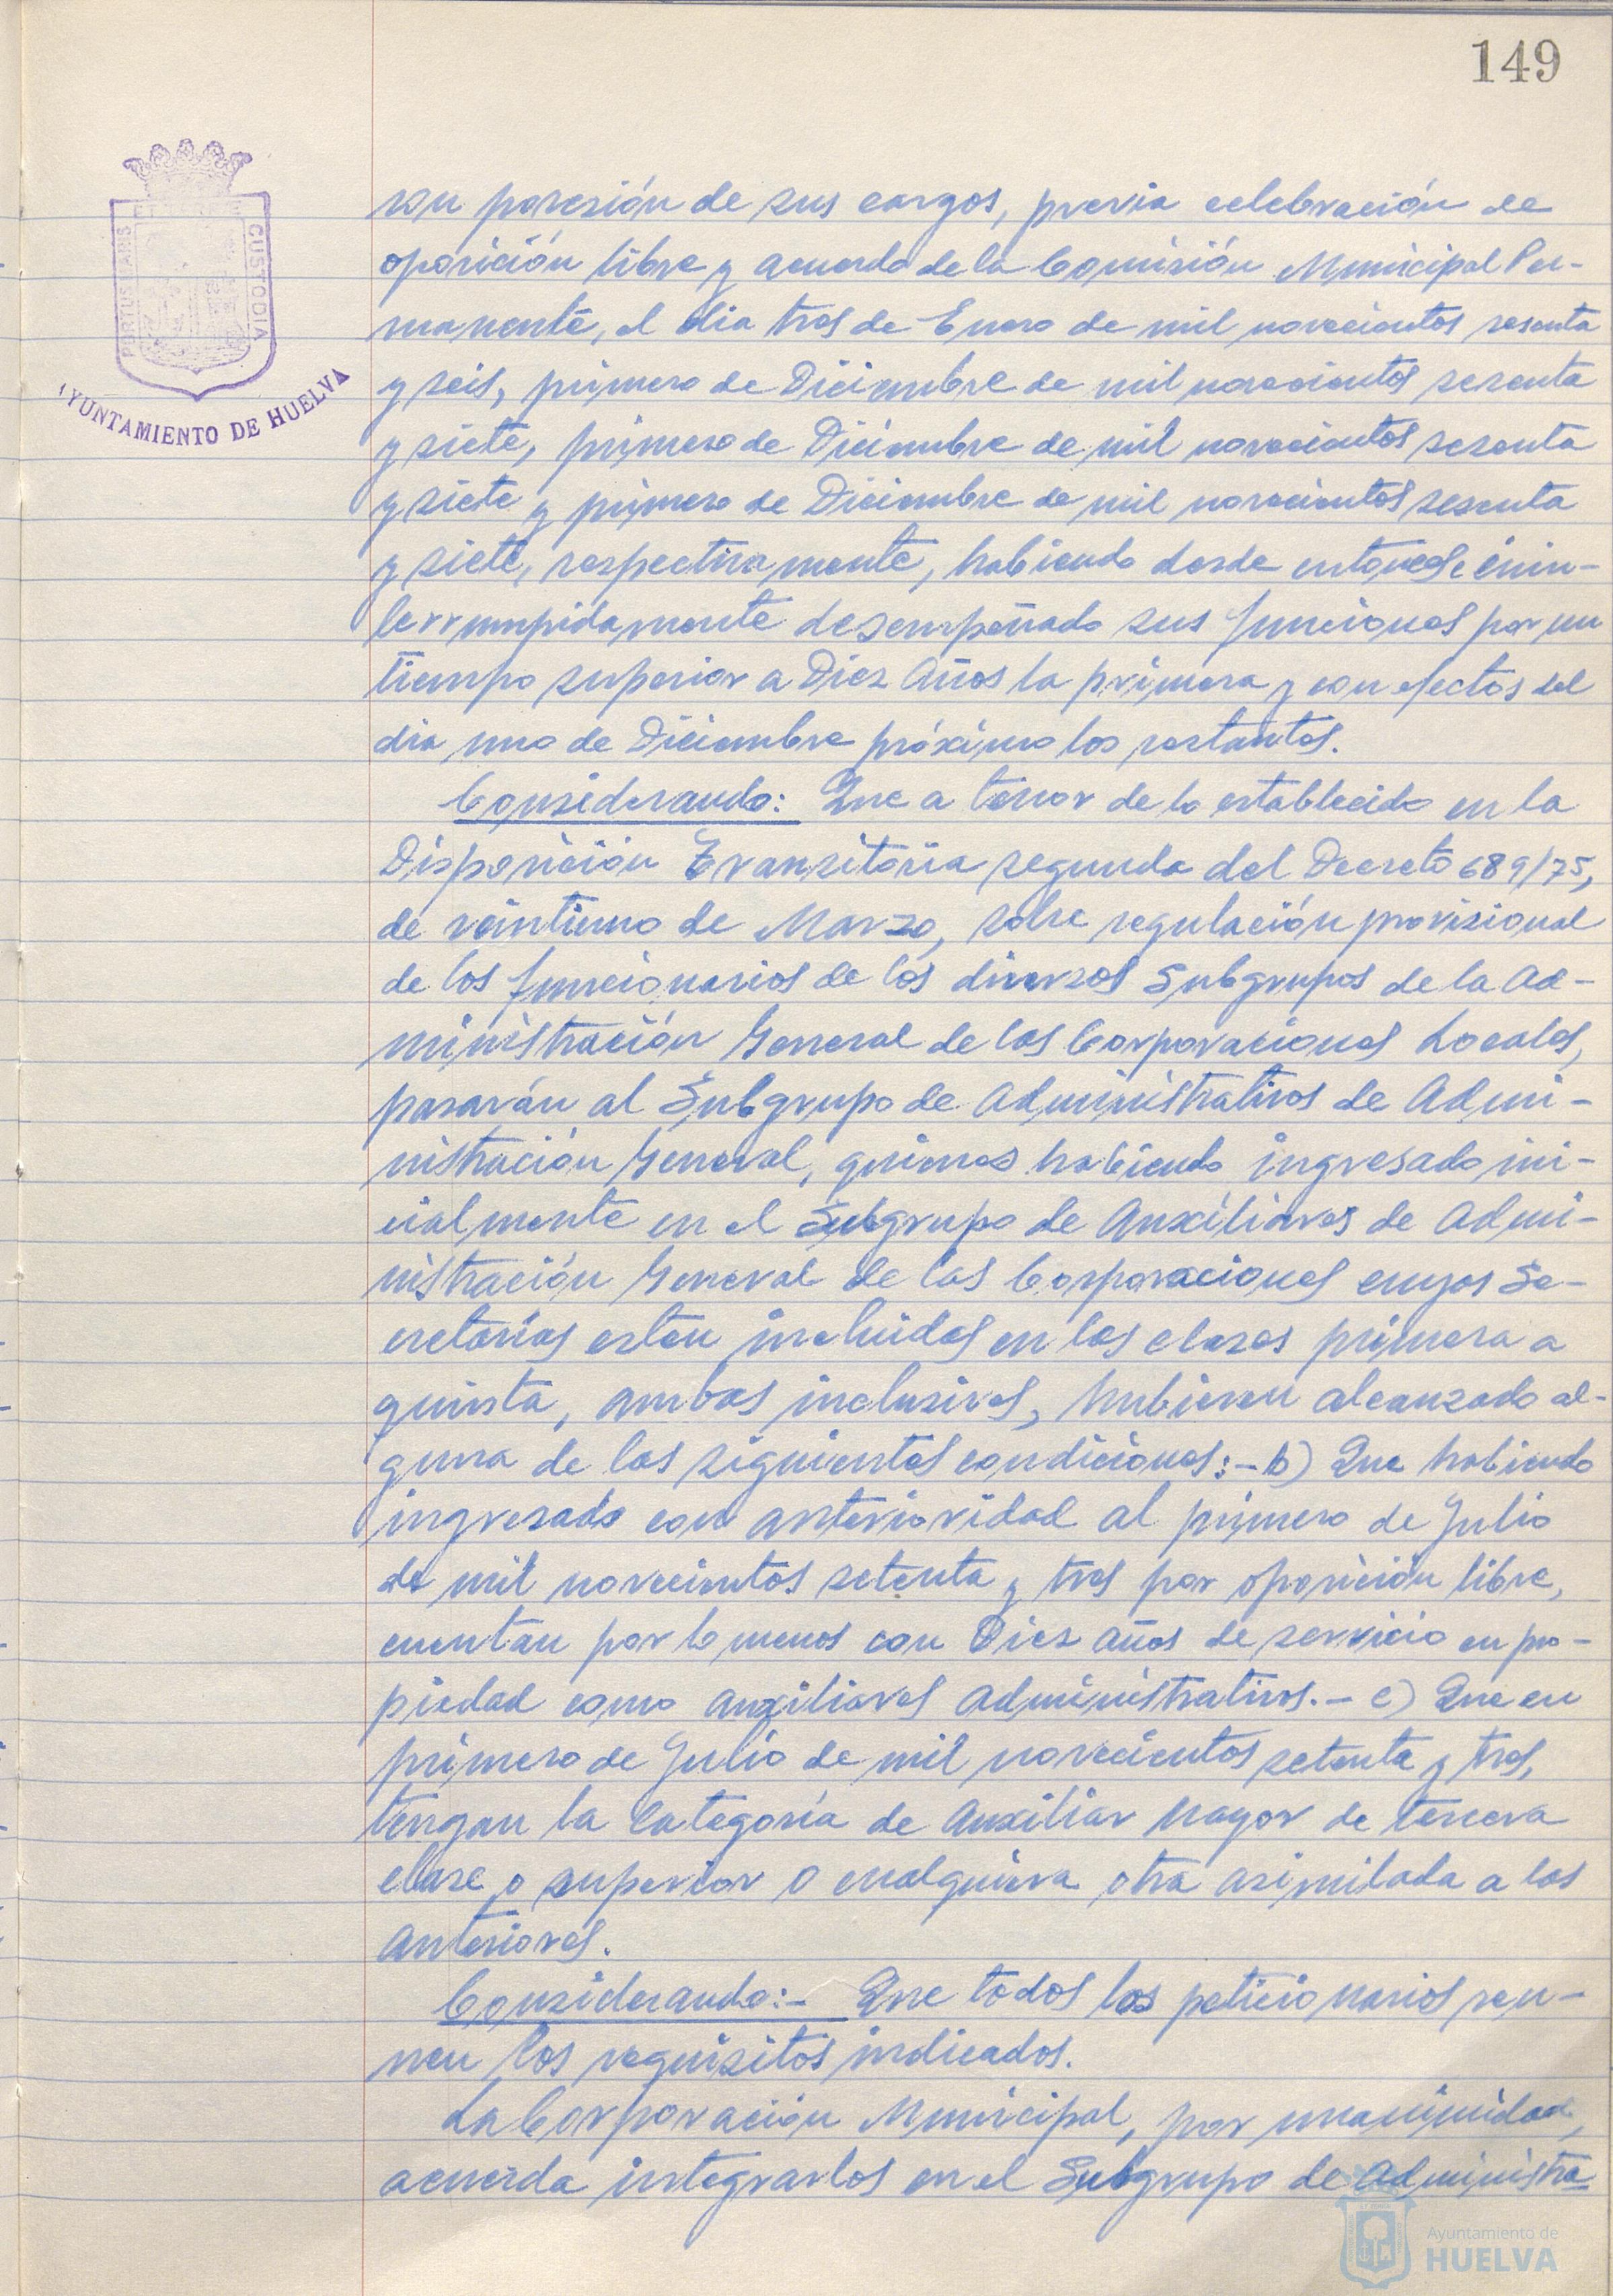 149
PORTUS MARIS
CUSTODIA
AYUNTAMIENTO DE HUELVA
ron posesión de sus cargos, previa celebración de
oposición libre y acuerdo de la Comisión Municipal Per-
manente, el dia tres de Enero de mil novecientos sesenta
y seis, primero de Diciembre de mil novecientos sesenta
y siete, primero de Diciembre de mil novecientos sesenta
y siete y primero de Diciembre de mil novecientos sesenta
y siete, respectivamente, habiendo desde entonces e inin-
terrumpidamente desempeñado sus funciones por un
tiempo superior a Diez Años la primera y con efectos del
dia uno de Diciembre próximo los restantes.
Considerando: Que a tenor de lo establecido en la
Disposición Transitoria segunda del Decreto 689/75,
de veintiuno de Marzo, sobre regulación provisional
de los funcionarios de los diversos Subgrupos de la Ad-
ministración General de las Corporaciones Locales,
pasarán al Subgrupo de Administrativos de Admi-
nistración General, quienes habiendo ingresado ini-
cialmente en el Subgrupo de Auxiliares de Admi-
nistración General de las Corporaciones cuyas Se-
cretarías esten incluidas en las clases primera a
quinta, ambas inclusives, hubieren alcanzado al-
guna de las siguientes condiciones:- b) Que habiendo
ingresado con anterioridad al primero de Julio
de mil novecientos setenta y tres por oposición libre,
cuentan por lo menos con Diez años de servicio en pro-
piedad como Auxiliares Administrativos.- c) Que en
primero de Julio de mil novecientos setenta y tres,
tengan la Categoría de Auxiliar Mayor de tercera
clase o superior o cualquiera otra asimilada a las
Anteriores.
Considerando:- Que todos los peticionarios reu-
nen los requisitos indicados.
La Corporación Municipal, por unanimidad,
acuerda integrarlos en el Subgrupo de Administra-
Ayuntamiento de
HUELVA